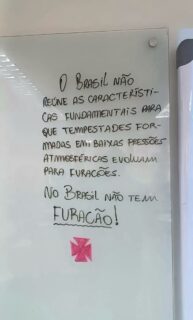 O BRASIL NÃO
REÚNE AS CARACTERÍSTI-
CAS FUNDAMENTAIS PARA
QUE TEMPESTADES FOR-
MADAS EM BAIXAS PRESSÕES
ATMOSFÉRICAS EVOLUAM
PARA FURACÕES.
NO BRASIL NÃO TEM
FURACÃO!